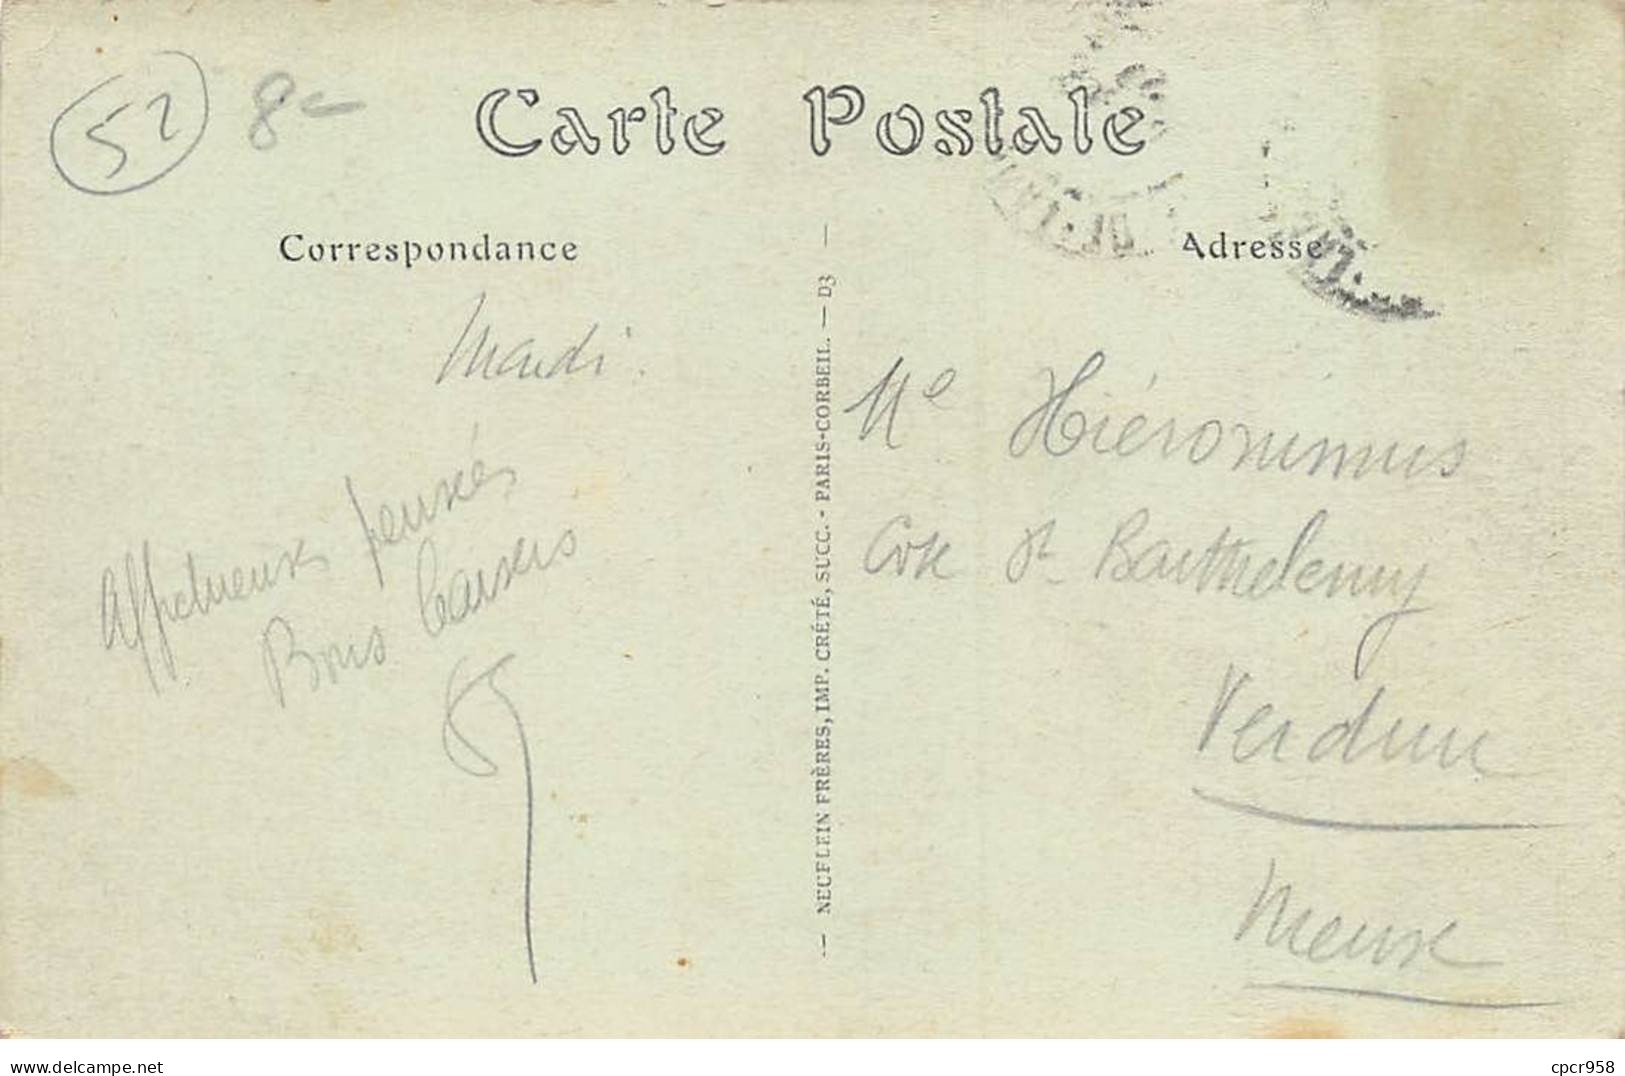 52
8-
Carte Postale
Correspondance
Adresse
Mardi.
Affectueuses pensées
Bons baisers
Me Hiéronimus
Cose St Barthelemy
Verdun
Meuse
-- NEUFLEIN FRÈRES, IMP. CRÉTÉ, SUCC. - PARIS-CORBEIL. — D3 —
www.delcampe.net
cpcr958